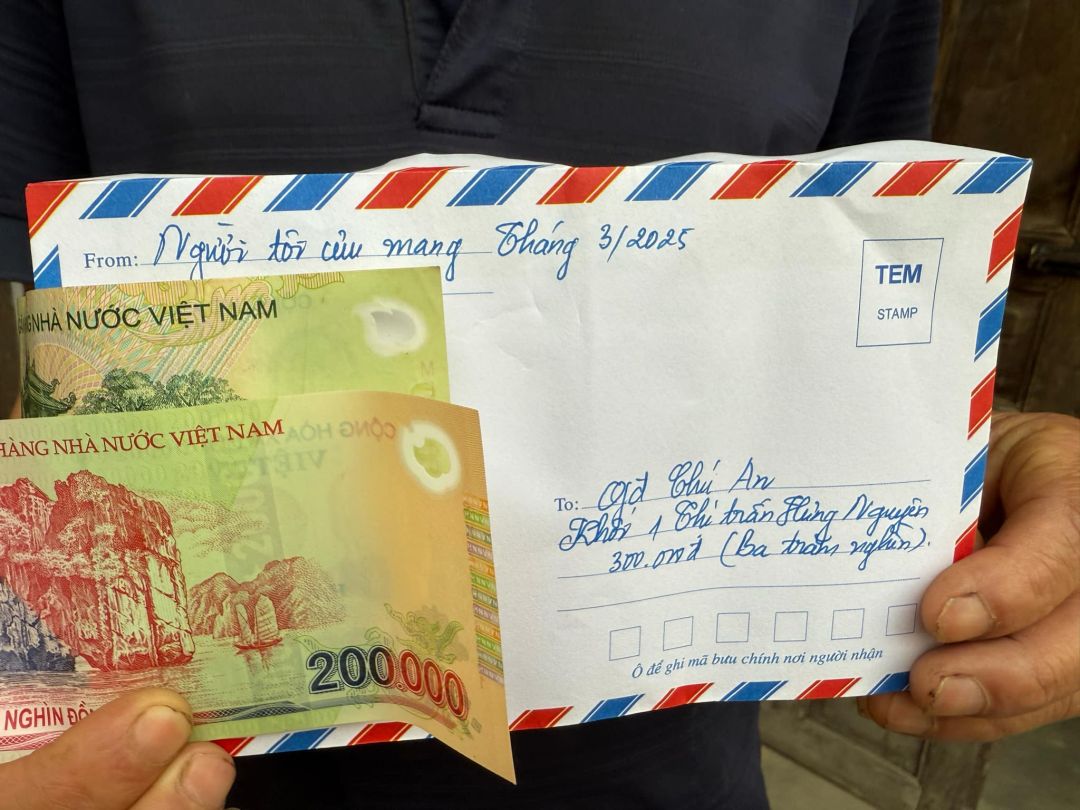 From: Người tôi cứu mang Tháng 3/2025
TEM
STAMP
NHÀ NƯỚC VIỆT NAM
HÀNG NHÀ NƯỚC VIỆT NAM
CỘNG HÒA
VIỆT
200.000
NGHÌN ĐỒ
To: Gđ Chú An
Khối 1 Thị trấn Hưng Nguyên
300.000đ (Ba trăm nghìn).
Ô để ghi mã bưu chính nơi người nhận